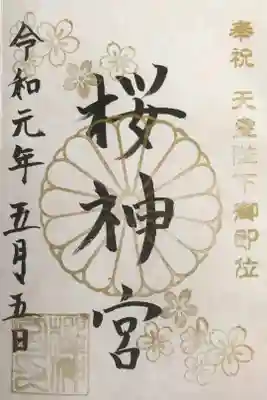 奉祝 天皇陛下御即位
桜神宮
令和元年 五月五日